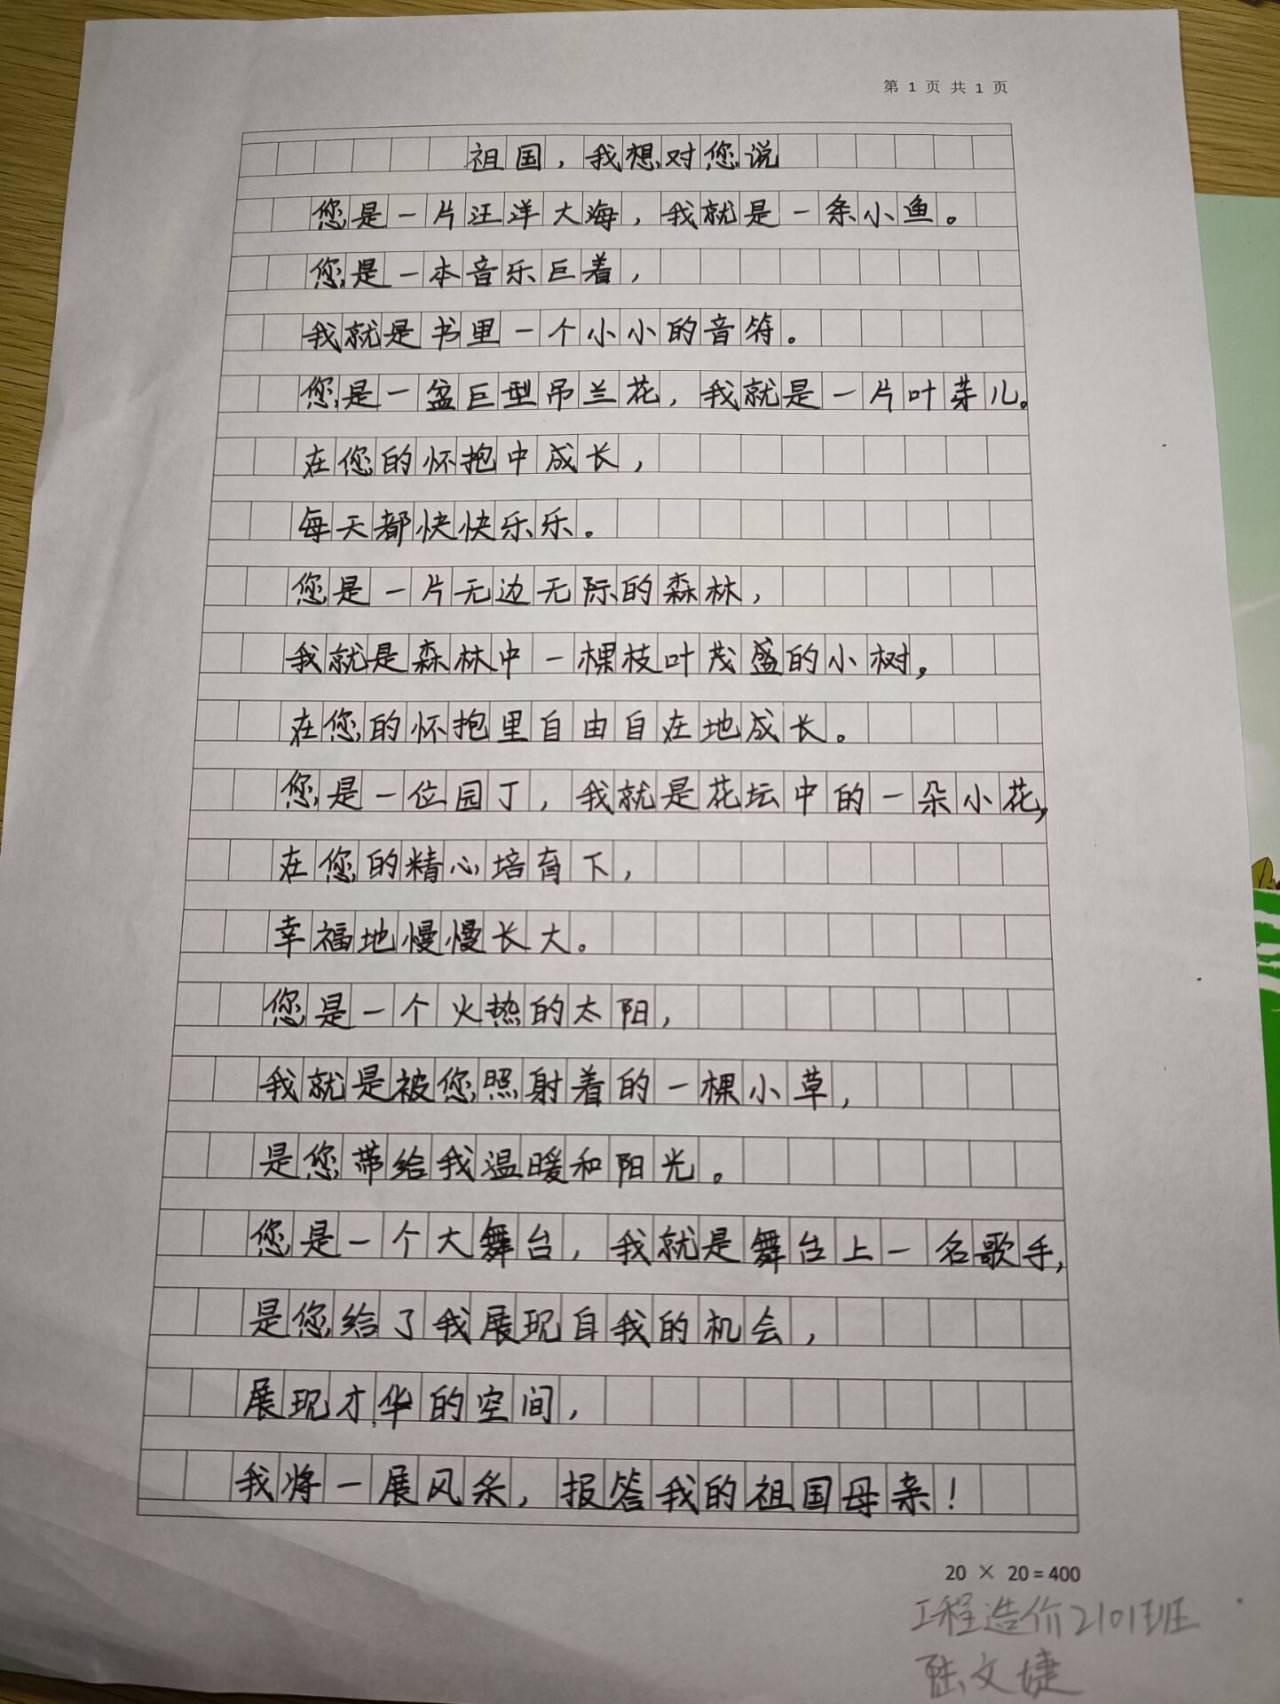 第 1 页 共 1 页
祖国，我想对您说
您是一片汪洋大海，我就是一条小鱼。
您是一本音乐巨着，
我就是书里一个小小的音符。
您是一盆巨型吊兰花，我就是一片叶芽儿。
在您的怀抱中成长，
每天都快快乐乐。
您是一片无边无际的森林，
我就是森林中一棵枝叶茂盛的小树，
在您的怀抱里自由自在地成长。
您是一位园丁，我就是花坛中的一朵小花，
在您的精心培育下，
幸福地慢慢长大。
您是一个火热的太阳，
我就是被您照射着的一棵小草，
是您带给我温暖和阳光。
您是一个大舞台，我就是舞台上一名歌手，
是您给了我展现自我的机会，
展现才华的空间，
我将一展风采，报答我的祖国母亲！
20 × 20=400
工程造价2101班
陆文婕